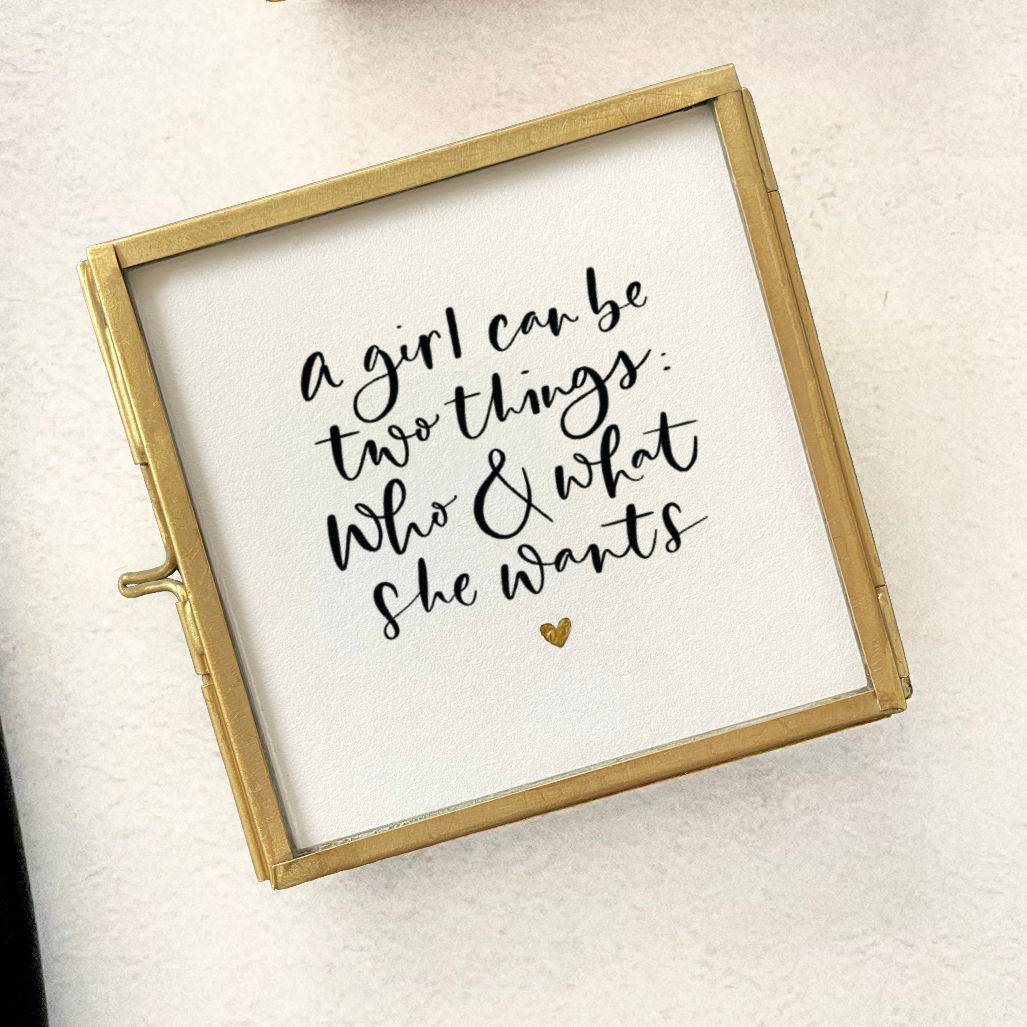 a girl can be
two things:
who & what
she wants